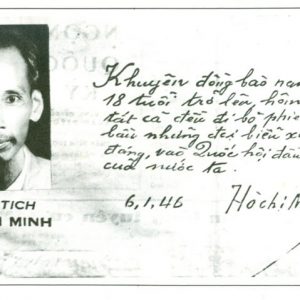 Khuyên đồng bào nam
18 tuổi trở lên, hôm
tất cả đều đi bỏ phiế
bầu những đại biểu x
đáng, vào Quốc hội đầu
của nước ta.
6.1.46 Hồ Chí M
TỊCH
MINH